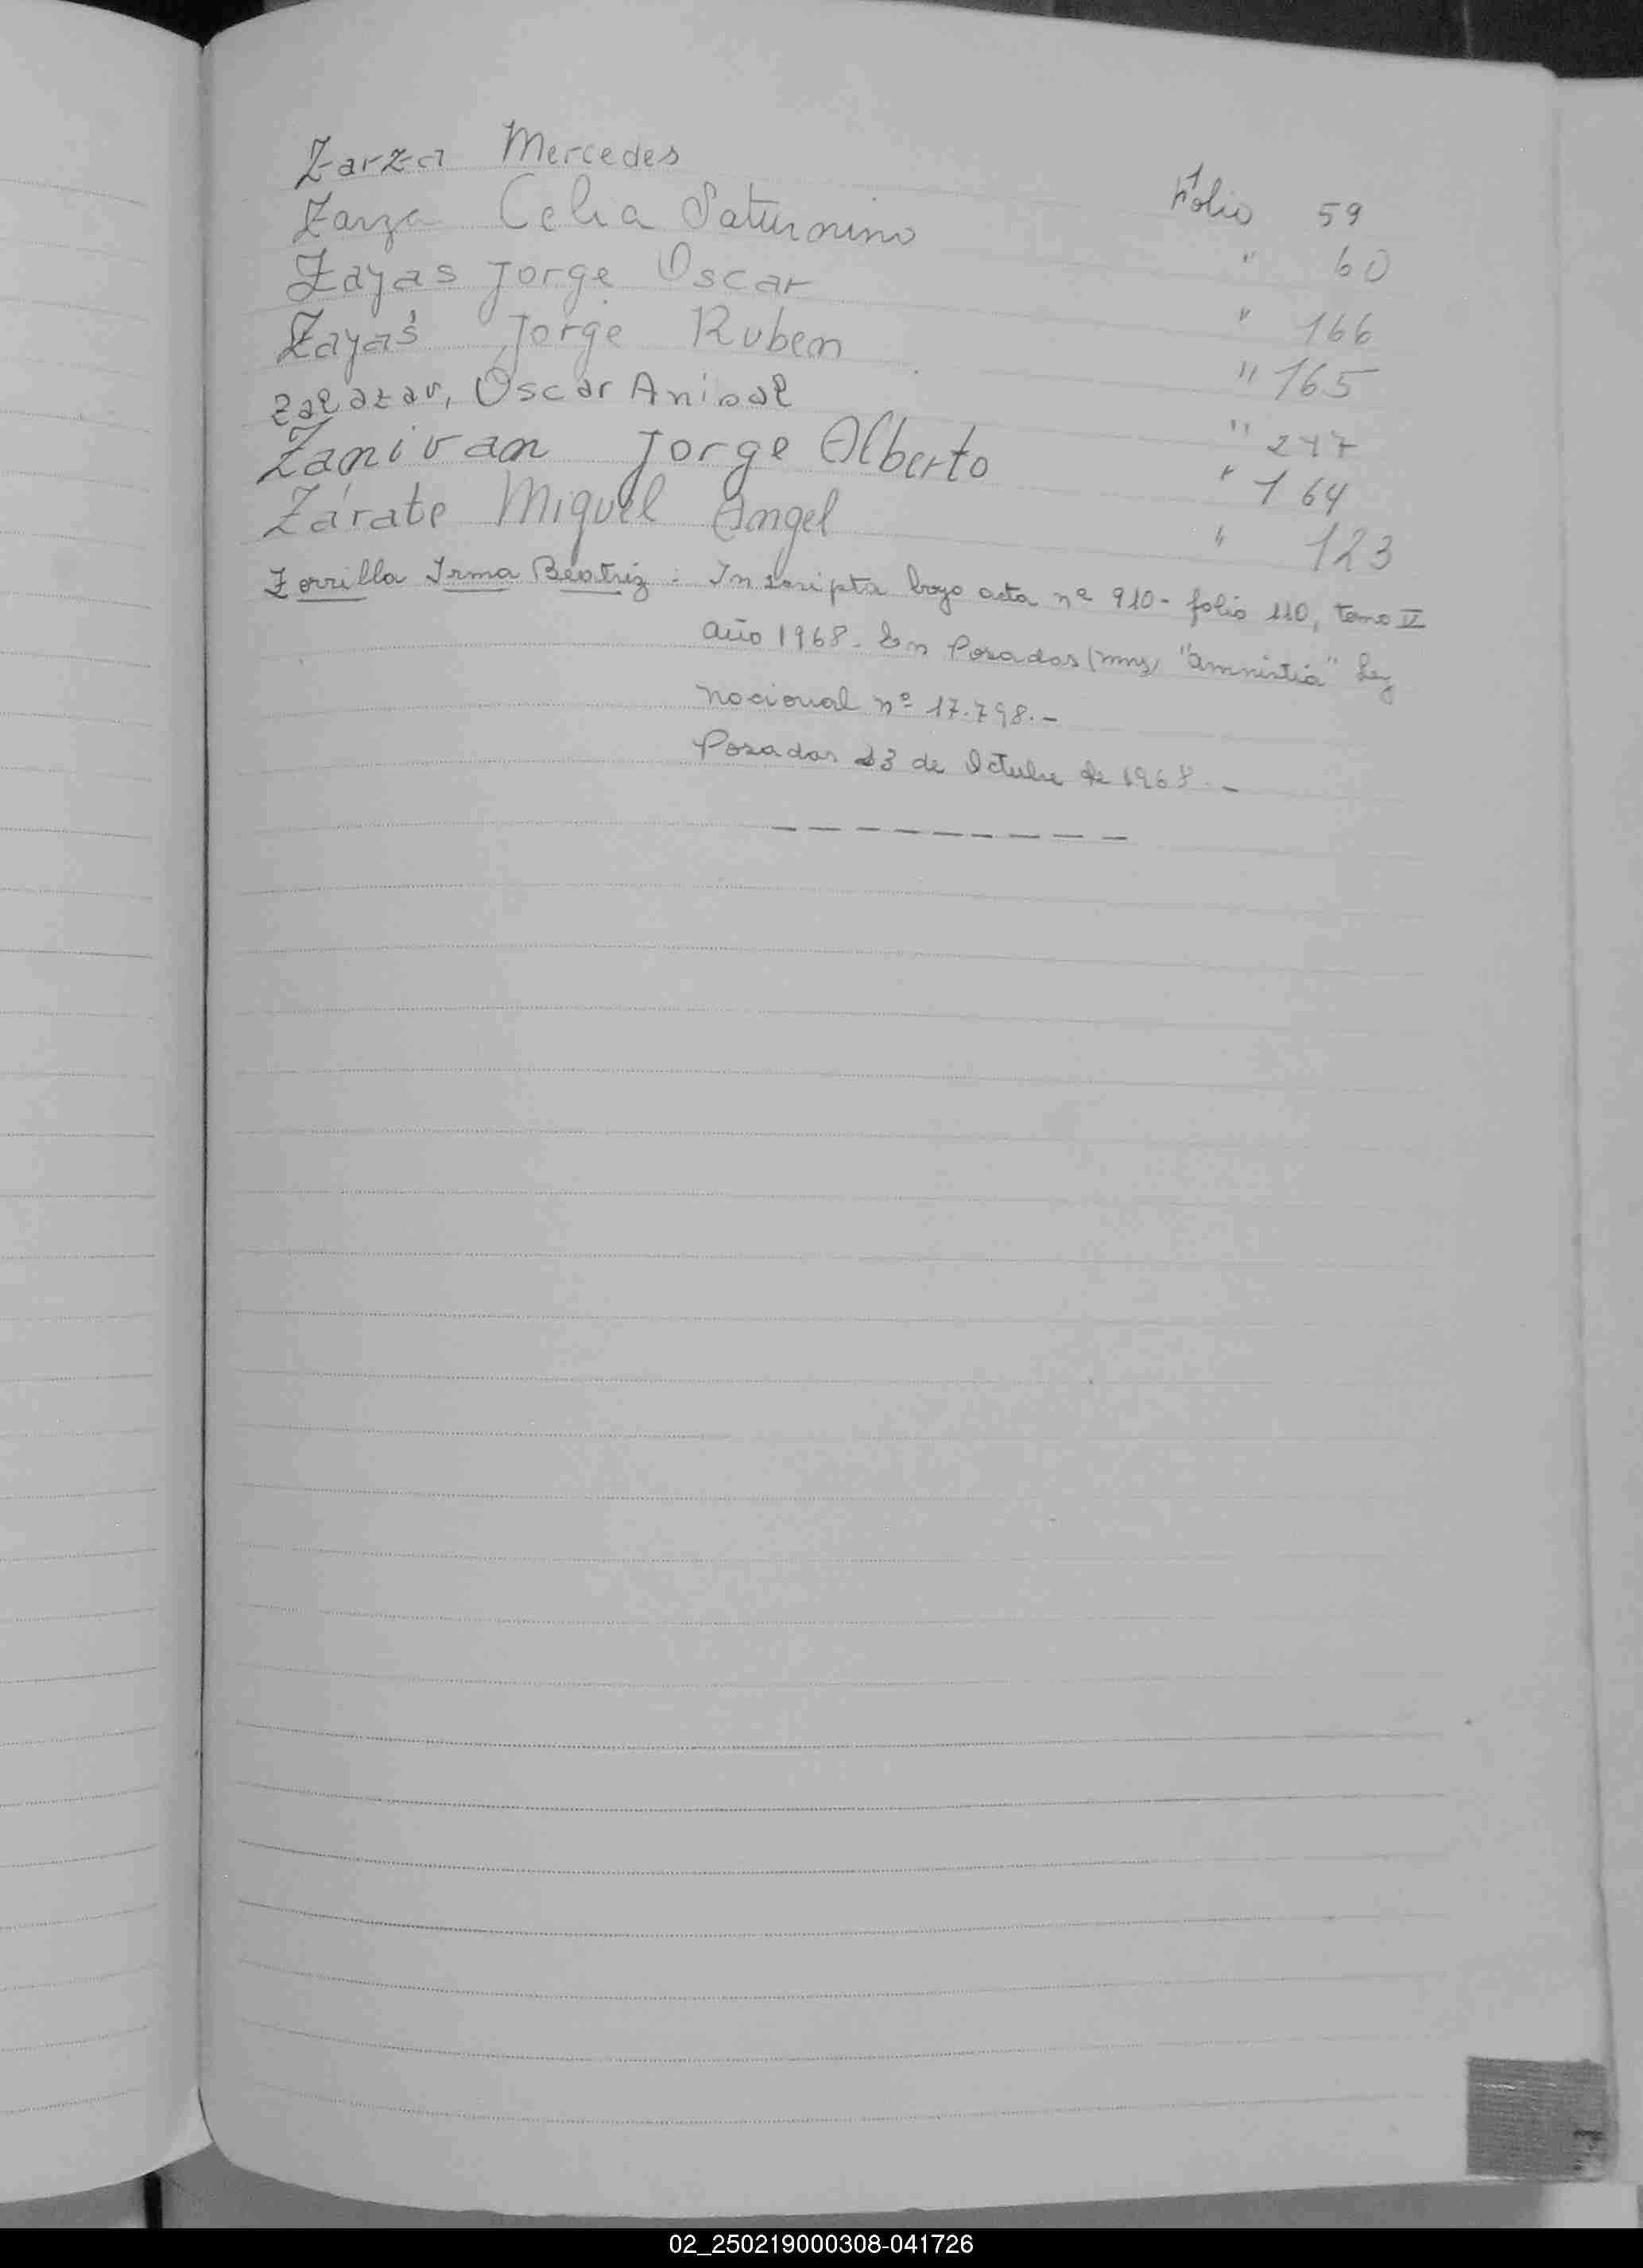 Zarza Mercedes Folio 59
Zarza Celia Saturnino " 60
Zayas Jorge Oscar " 166
Zayas Jorge Ruben " 165
Zalazar, Oscar Anibal " 247
Zanivan Jorge Alberto " 164
Zárate Miguel Angel " 123
Zorrilla Irma Beatriz : Inscripta bajo acta nº 910 - folio 110, tomo II
año 1968. En Posadas (mns) "amnistia" Ley
nacional nº 17.798.-
Posadas 23 de Octubre de 1968.-
02_250219000308-041726